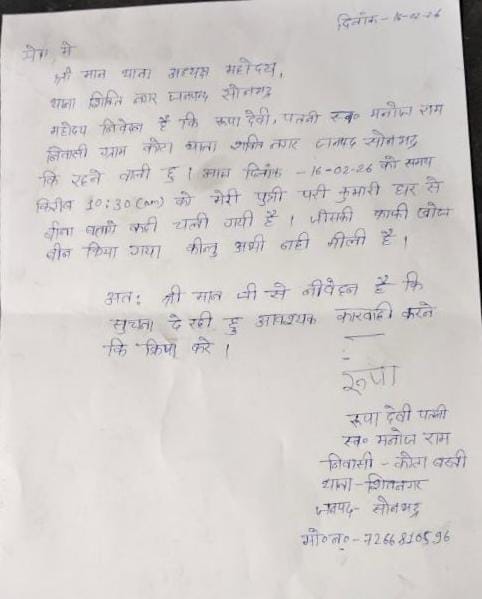 दिनांक - 16-02-26
सेवा मे
श्री मान थाना अध्यक्ष महोदय,
थाना शक्ति नगर जनपद सोनभद्र
महोदय निवेदन है कि रूपा देवी, पतनी स्व० मनोज राम
निवासी ग्राम कोटा थाना शक्ति नगर जनपद सोनभद्र
कि रहने वाली हु । आज दिनांक - 16-02-26 को समय
करिब 10:30(am) को मेरी पुत्री परी कुमारी घर से
बीना बताये कही चली गयी है । जीसकी काफी खोज
बीन किया गया कीन्तु अभी नही मीली है ।
अत: श्री मान जी से नीवेदन है कि
सुचना दे रही हु आवश्यक कारवाही करने
कि क्रिपा करे ।
रूपा
रूपा देवी पत्नी
स्व० मनोज राम
निवासी - कोटा बस्ती
थाना - शक्तिनगर
जनपद - सोनभद्र
मो०न०- 7266810596